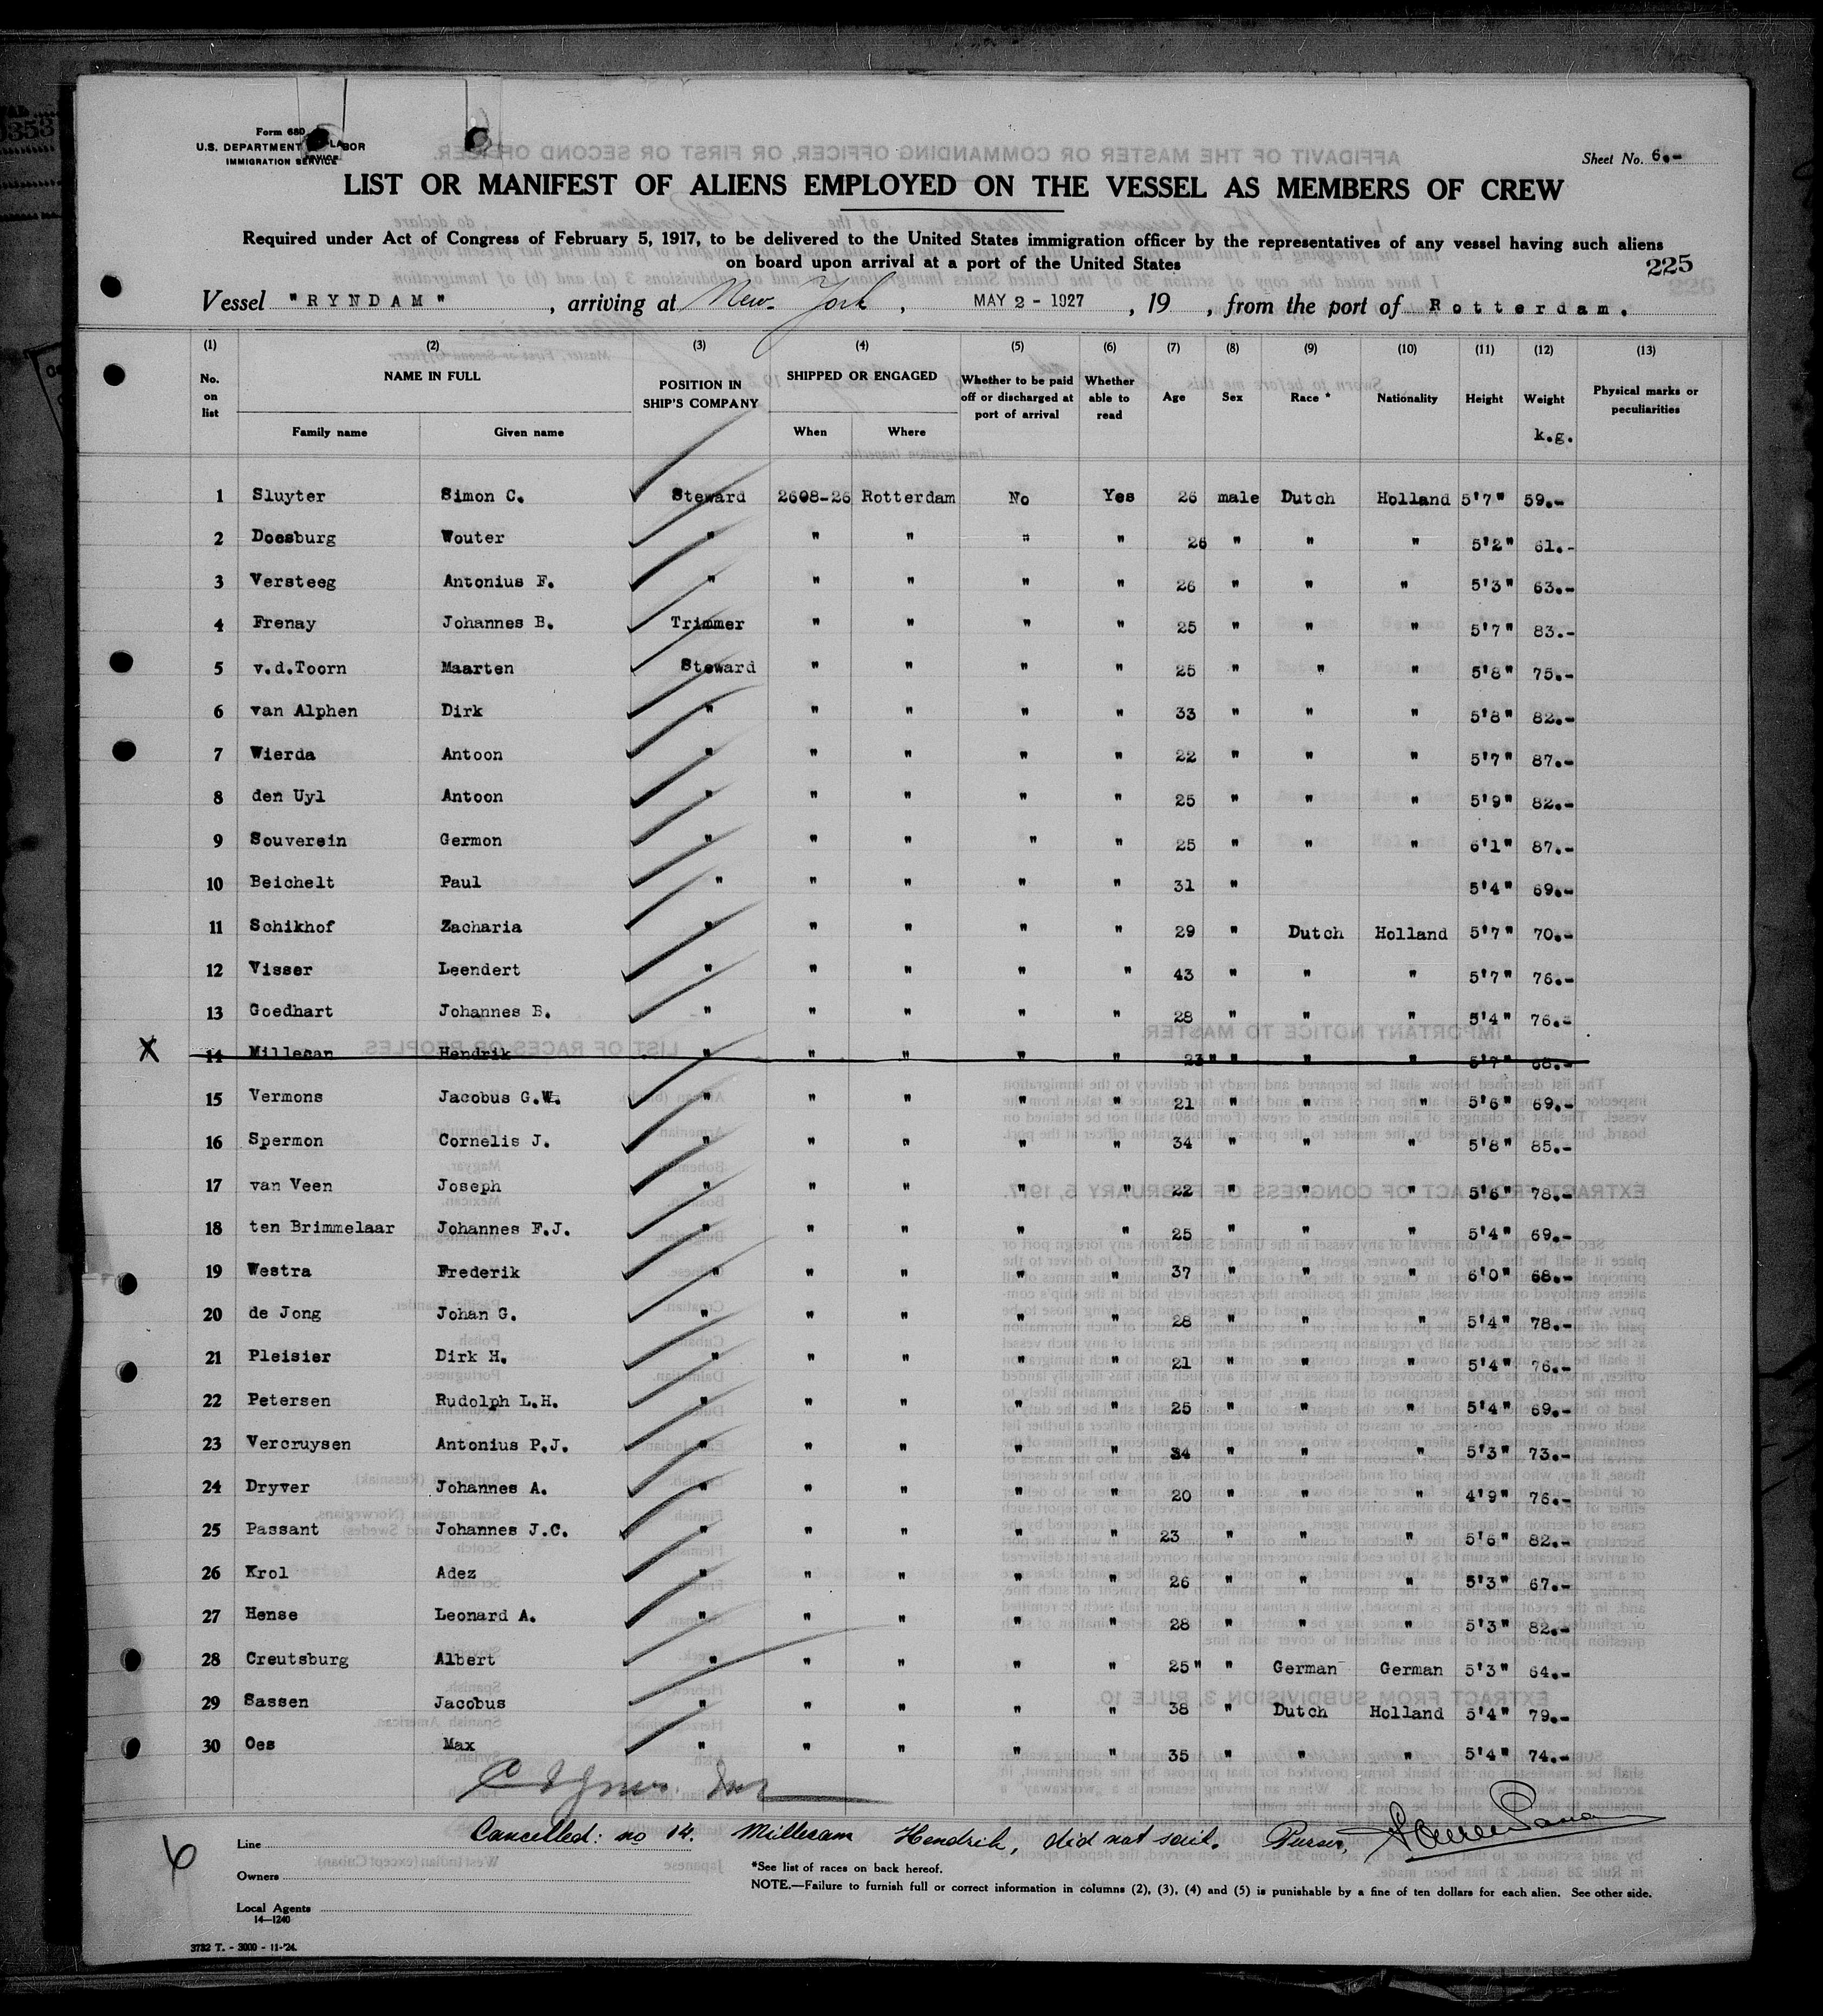 Form 680
U.S. DEPARTMENT LABOR
IMMIGRATION SERVICE
Sheet No. 6.-
LIST OR MANIFEST OF ALIENS EMPLOYED ON THE VESSEL AS MEMBERS OF CREW
Required under Act of Congress of February 5, 1917, to be delivered to the United States immigration officer by the representatives of any vessel having such aliens
on board upon arrival at a port of the United States
225
Vessel "RYNDAM", arriving at New York, MAY 2 - 1927, 19 , from the port of Rotterdam.
(1) (2) (3) (4) (5) (6) (7) (8) (9) (10) (11) (12) (13)
No. on list NAME IN FULL POSITION IN SHIP'S COMPANY SHIPPED OR ENGAGED Whether to be paid off or discharged at port of arrival Whether able to read Age Sex Race * Nationality Height Weight Physical marks or peculiarities
Family name Given name When Where k.g.
1 Sluyter Simon C. Steward 2608-26 Rotterdam No Yes 26 male Dutch Holland 5'7" 59.-
2 Doesburg Wouter " " " " " 26 " " " 5'2" 61.-
3 Versteeg Antonius F. " " " " " 26 " " " 5'3" 63.-
4 Frenay Johannes B. Trimmer " " " " 25 " " " 5'7" 83.-
5 v.d.Toorn Maarten Steward " " " " 25 " " " 5'8" 75.-
6 van Alphen Dirk " " " " " 33 " " " 5'8" 82.-
7 Wierda Antoon " " " " " 22 " " " 5'7" 87.-
8 den Uyl Antoon " " " " " 25 " " " 5'9" 82.-
9 Souverein Germon " " " " " 25 " " " 6'1" 87.-
10 Beichelt Paul " " " " " 31 " 5'4" 69.-
11 Schikhof Zacharia " " " " " 29 " Dutch Holland 5'7" 70.-
12 Visser Leendert " " " " " 43 " " " 5'7" 76.-
13 Goedhart Johannes B. " " " " " 28 " " " 5'4" 76.-
X 14 Millecan Hendrik " " " " " 23 " " " " 5'7" 68.-
15 Vermons Jacobus G.W. " " " " " 21 " " " 5'6" 69.-
16 Spermon Cornelis J. " " " " " 34 " " " 5'8" 85.-
17 van Veen Joseph " " " " " 22 " " " 5'6" 78.-
18 ten Brimmelaar Johannes F.J. " " " " " 25 " " " 5'4" 69.-
19 Westra Frederik " " " " " 37 " " " 6'0" 68.-
20 de Jong Johan G. " " " " " 28 " " " 5'4" 78.-
21 Pleisier Dirk H. " " " " " 21 " " " 5'4" 76.-
22 Petersen Rudolph L.H. " " " " " 25 " " " 5'4" 69.-
23 Vercruysen Antonius P.J. " " " " " 34 " " " 5'3" 73.-
24 Dryver Johannes A. " " " " " 20 " " " 4'9" 76.-
25 Passant Johannes J.C. " " " " " 23 " " " 5'6" 82.-
26 Krol Adez " " " " " 26 " " " 5'3" 67.-
27 Hense Leonard A. " " " " " 28 " " " 5'3" 82.-
28 Creutsburg Albert " " " " " 25 " " German German 5'3" 64.-
29 Sassen Jacobus " " " " " 38 " Dutch Holland 5'4" 79.-
30 Oes Max " " " " " 35 " " " 5'4" 74.-
Cancelled: no 14. Millecam Hendrik, did not sail. Purser,
6
Line
Owners
Local Agents
14—1240
*See list of races on back hereof.
NOTE.—Failure to furnish full or correct information in columns (2), (3), (4) and (5) is punishable by a fine of ten dollars for each alien. See other side.
3782 T. - 3000 - 11-'24.